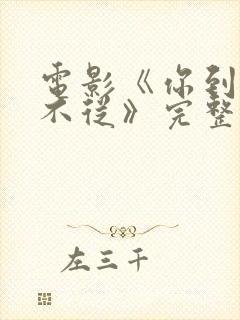 電影《你到
不從》完整
左三千